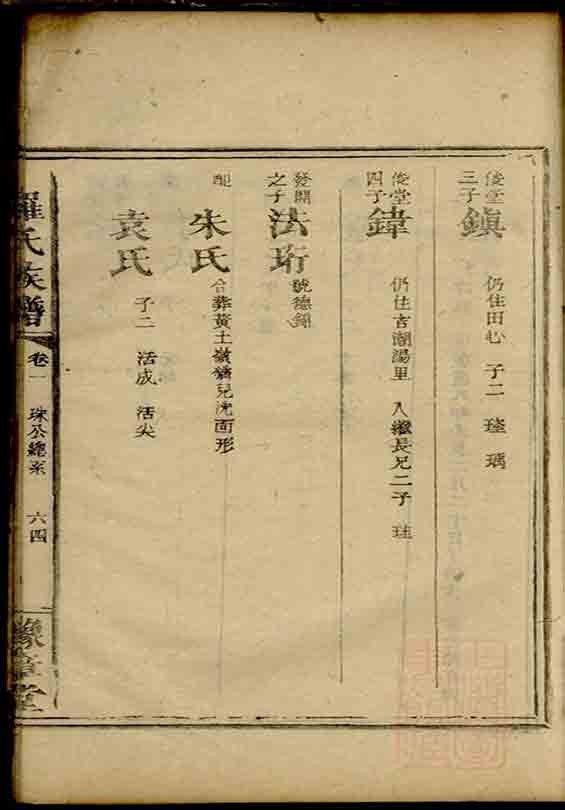 俊堂三子
鎮
仍住田心 子二 㻏 瑀
俊堂四子
鍏
仍住吉潮湯里 入繼長兄二子 珪
發開之子
法珩
號德錦
配
朱氏
合葬黃土嶺獅兒洗面形
袁氏
子二 活成 活尖
羅氏族譜
卷一
珠公總系
六四
豫章堂